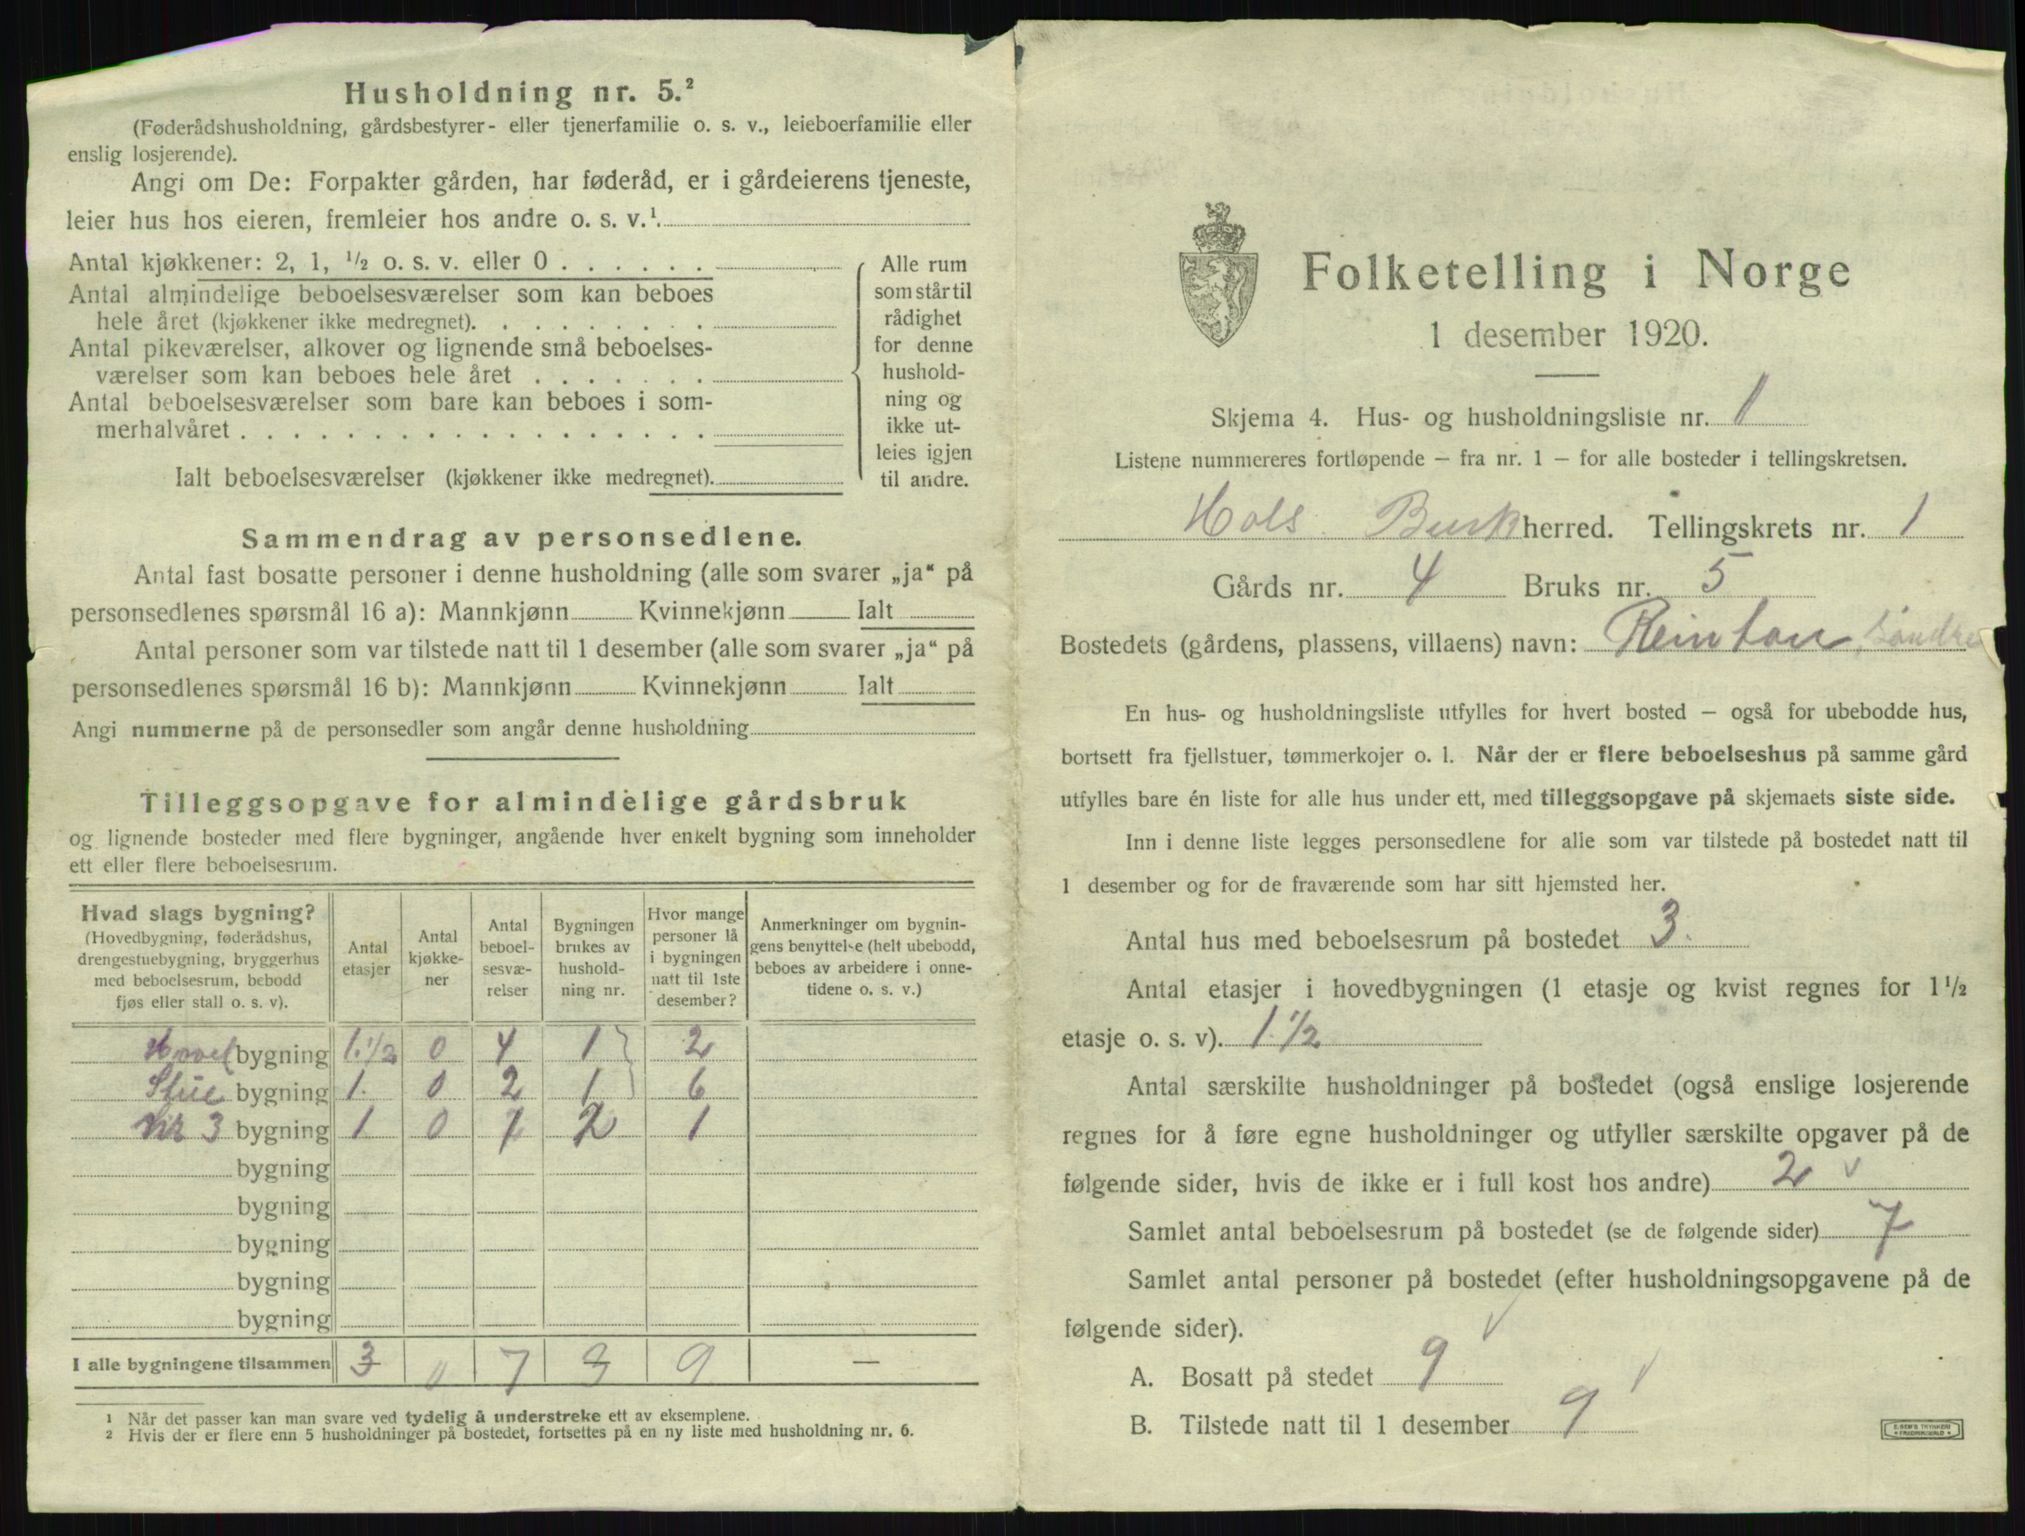 Husholdning nr. 5.²
(Føderådshusholdning, gårdsbestyrer- eller tjenerfamilie o. s. v., leieboerfamilie eller
enslig losjerende).
Angi om De: Forpakter gården, har føderåd, er i gårdeierens tjeneste,
leier hus hos eieren, fremleier hos andre o. s. v.¹.
Antal kjøkkener: 2, 1, ½ o. s. v. eller 0 . . . . . .
Antal almindelige beboelsesværelser som kan beboes
hele året (kjøkkener ikke medregnet). . . . . . . . .
Antal pikeværelser, alkover og lignende små beboelses-
værelser som kan beboes hele året . . . . . . .
Antal beboelsesværelser som bare kan beboes i som-
merhalvåret . . . . . . . . . . . . . . . . . .
Ialt beboelsesværelser (kjøkkener ikke medregnet).
Alle rum
som står til
rådighet
for denne
hushold-
ning og
ikke ut-
leies igjen
til andre.
Sammendrag av personsedlene.
Antal fast bosatte personer i denne husholdning (alle som svarer „ja“ på
personsedlenes spørsmål 16 a): Mannkjønn Kvinnekjønn Ialt
Antal personer som var tilstede natt til 1 desember (alle som svarer „ja“ på
personsedlenes spørsmål 16 b): Mannkjønn Kvinnekjønn Ialt
Angi nummerne på de personsedler som angår denne husholdning
Tilleggsopgave for almindelige gårdsbruk
og lignende bosteder med flere bygninger, angående hver enkelt bygning som inneholder
ett eller flere beboelsesrum.
Hvad slags bygning?
(Hovedbygning, føderådshus,
drengestuebygning, bryggerhus
med beboelsesrum, bebodd
fjøs eller stall o. s. v).
Antal
etasjer
Antal
kjøkke-
ner
Antal
beboel-
sesvæ-
relser
Bygningen
brukes av
hushold-
ning nr.
Hvor mange
personer lå
i bygningen
natt til 1ste
desember?
Anmerkninger om bygnin-
gens benyttelse (helt ubebodd,
beboes av arbeidere i onne-
tidene o. s. v.)
Hoved bygning 1.1/2 0 4 1 2
Stue bygning 1. 0 2 1 6
Nr 3 bygning 1 0 1 2 1
bygning
bygning
bygning
bygning
bygning
I alle bygningene tilsammen 3 0 7 3 9 —
1 Når det passer kan man svare ved tydelig å understreke ett av eksemplene.
2 Hvis der er flere enn 5 husholdninger på bostedet, fortsettes på en ny liste med husholdning nr. 6.
Folketelling i Norge
1 desember 1920.
Skjema 4. Hus- og husholdningsliste nr. 1
Listene nummereres fortløpende – fra nr. 1 – for alle bosteder i tellingskretsen.
Hols Busk herred. Tellingskrets nr. 1
Gårds nr. 4 Bruks nr. 5
Bostedets (gårdens, plassens, villaens) navn: Reinton, Søndre
En hus- og husholdningsliste utfylles for hvert bosted – også for ubebodde hus,
bortsett fra fjellstuer, tømmerkojer o. l. Når der er flere beboelseshus på samme gård
utfylles bare én liste for alle hus under ett, med tilleggsopgave på skjemaets siste side.
Inn i denne liste legges personsedlene for alle som var tilstede på bostedet natt til
1 desember og for de fraværende som har sitt hjemsted her.
Antal hus med beboelsesrum på bostedet 3.
Antal etasjer i hovedbygningen (1 etasje og kvist regnes for 1½
etasje o. s. v). 1.1/2
Antal særskilte husholdninger på bostedet (også enslige losjerende
regnes for å føre egne husholdninger og utfyller særskilte opgaver på de
følgende sider, hvis de ikke er i full kost hos andre) 2 v
Samlet antal beboelsesrum på bostedet (se de følgende sider) 7
Samlet antal personer på bostedet (efter husholdningsopgavene på de
følgende sider). v
A. Bosatt på stedet 9 v
B. Tilstede natt til 1 desember 9